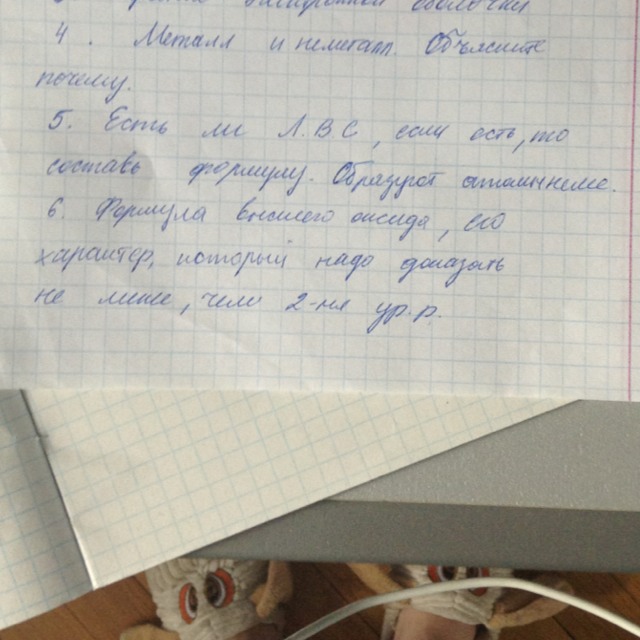 электронной оболочки
4. Металл и неметалл Объясните
почему.
5. Есть ли Л.В.С, если есть, то
составь формулу. Образуют атомы неме.
6. Формула высшего оксида, его
характер, который надо доказать
не мене, чем 2-мя ур.р.